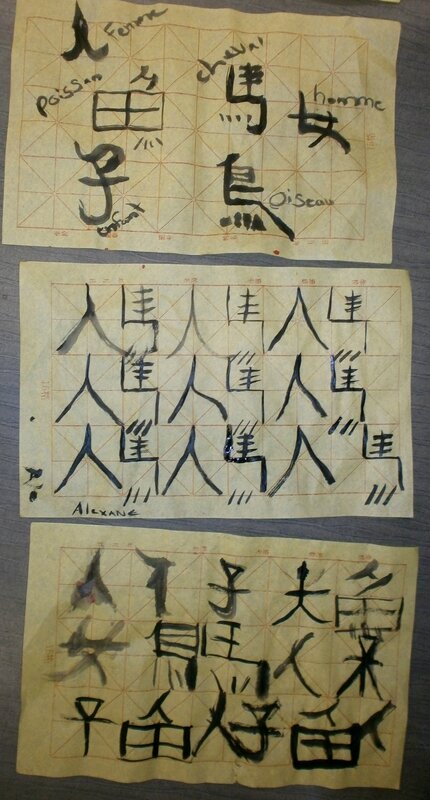 人 Femme
Poisson 魚 cheval 馬 homme 女
子 enfant 鳥 oiseau
人 馬 人 馬 人 馬
人 馬 人 馬 人 馬
人 馬 人 馬 人 馬
ALEXANE
人 子 大 魚
女 馬 人
子 魚 人 子 魚 人